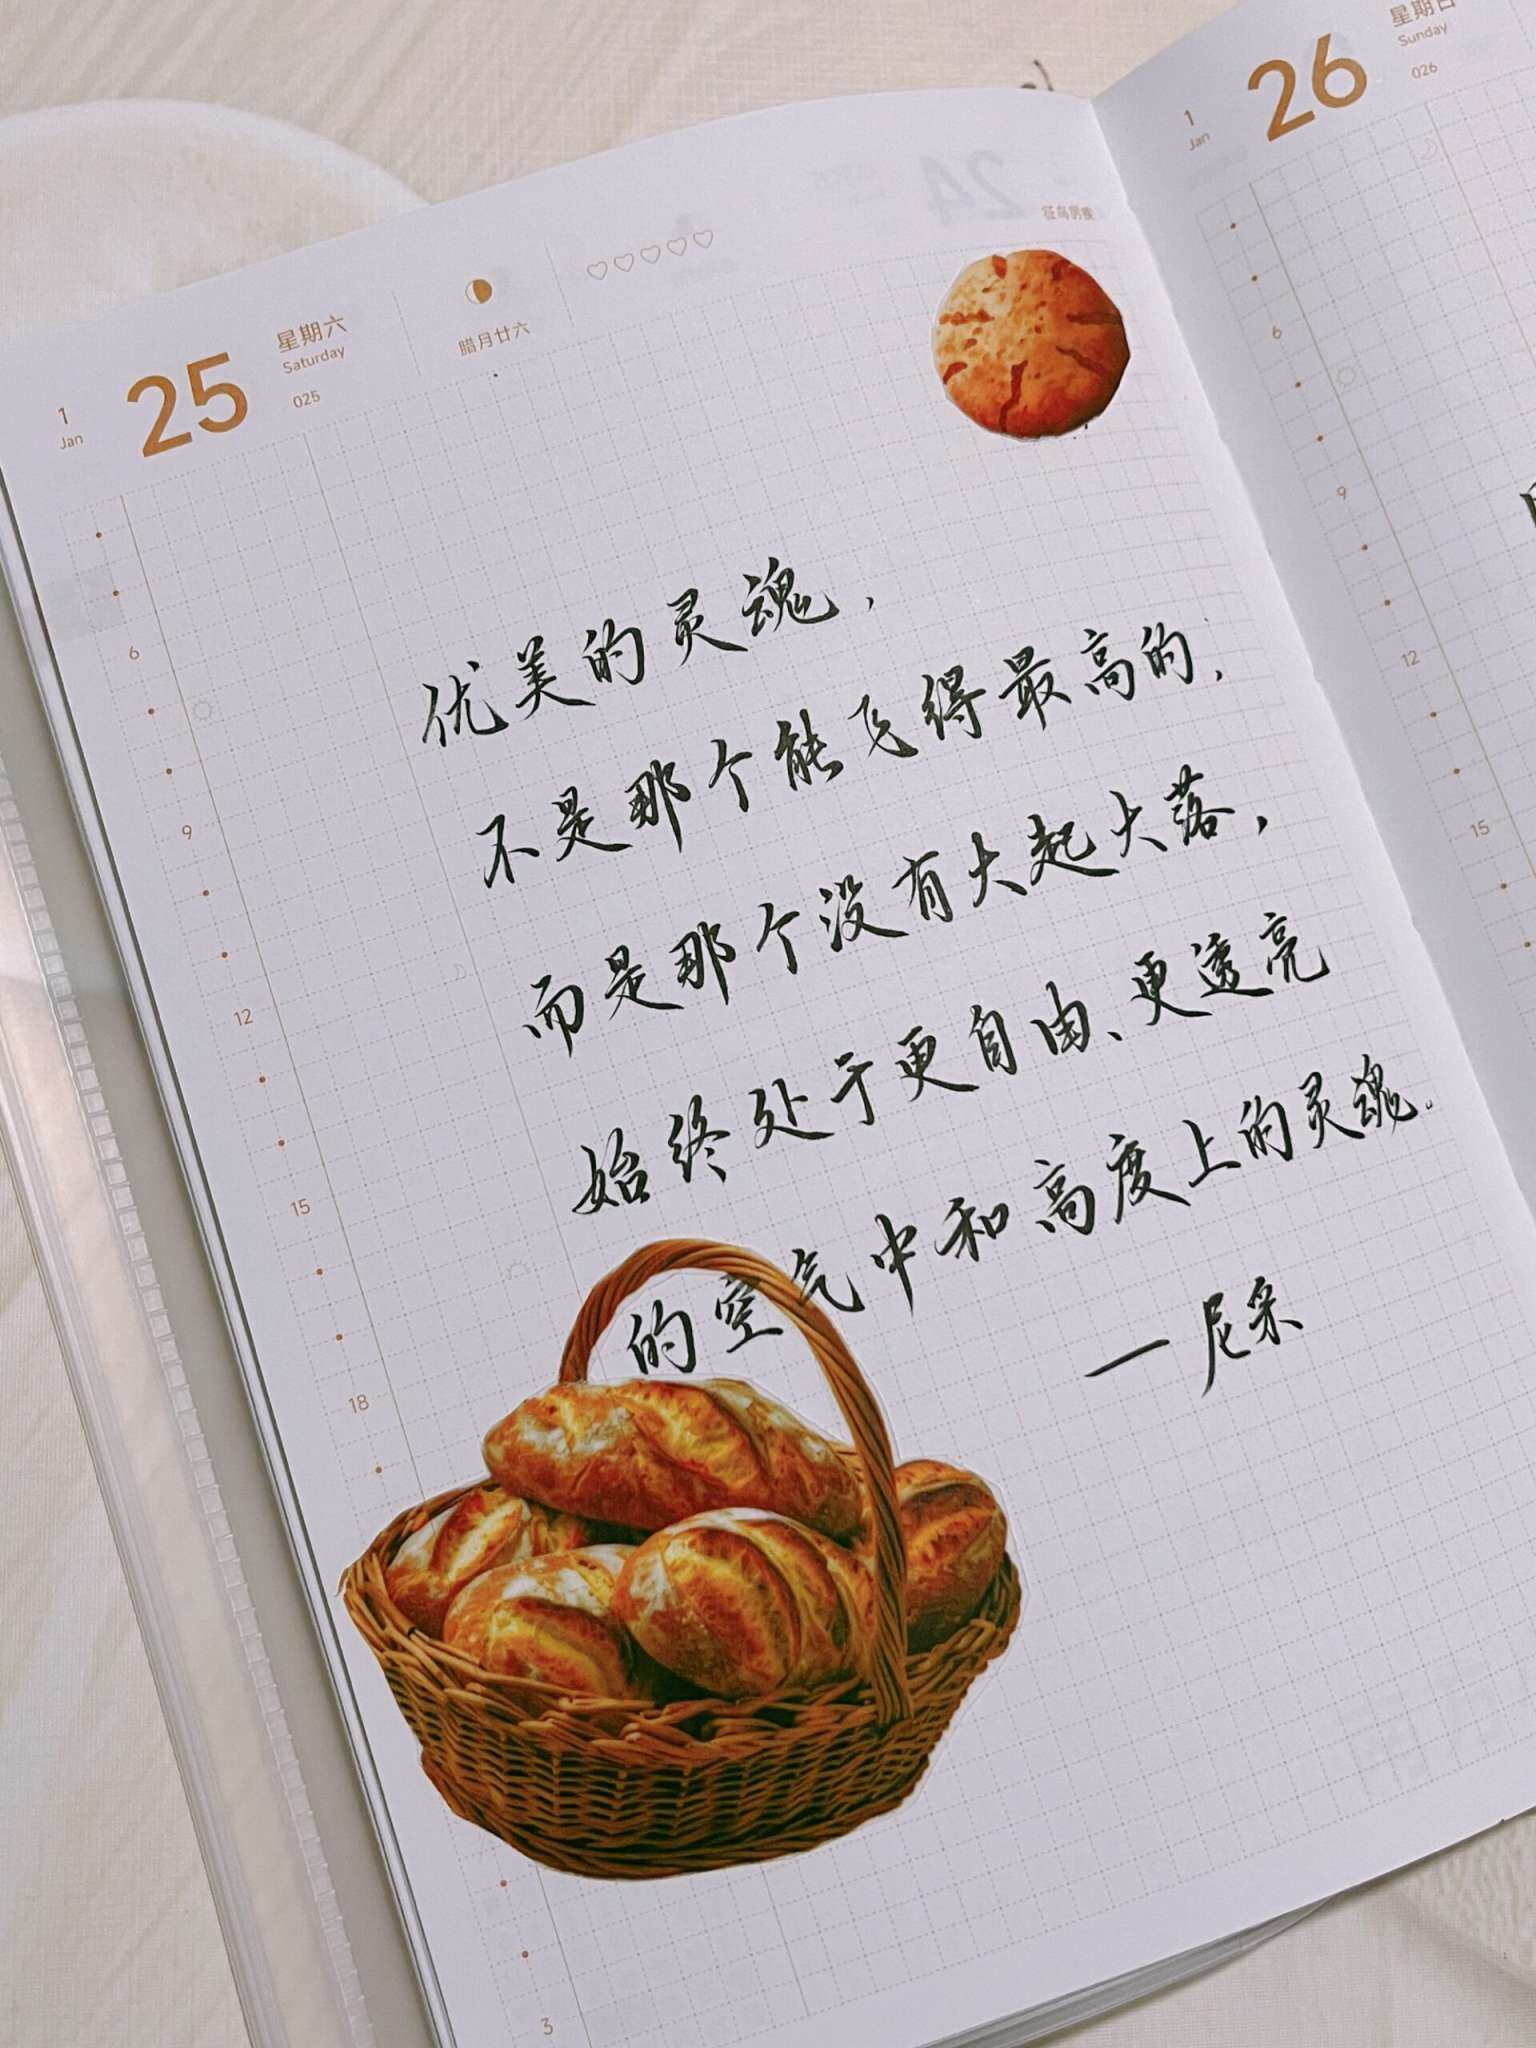 1
Jan
25
星期六
Saturday
025
腊月廿六
征鸟厉疾
优美的灵魂，
不是那个能飞得最高的，
而是那个没有大起大落，
始终处于更自由、更透亮
的空气中和高度上的灵魂。
— 尼采
6
9
12
15
18
3
1
Jan
26
星期日
Sunday
026
6
9
12
15